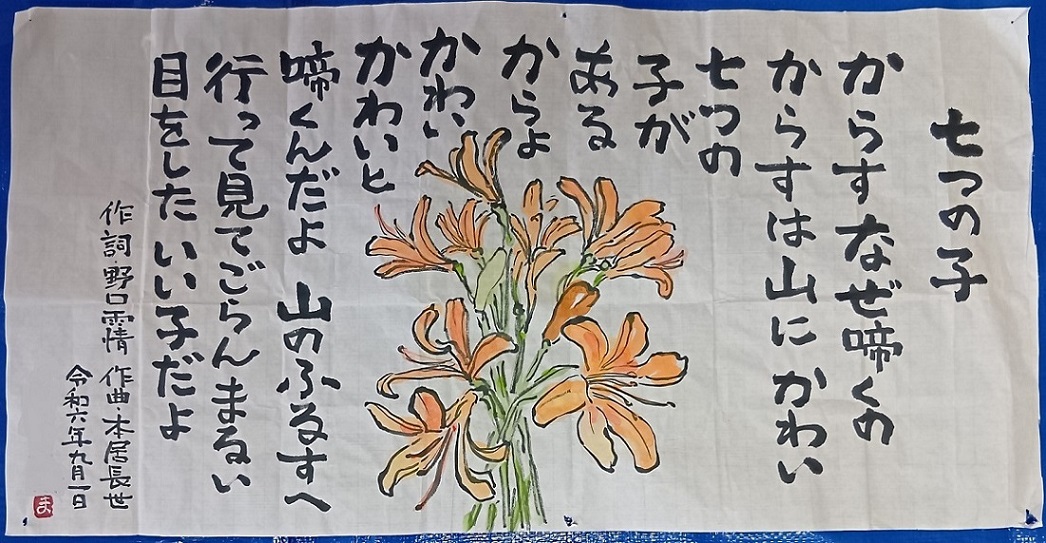 七つの子
からすなぜ啼くの
からすは山に かわい
七つの
子が
ある
からよ
かわい
かわいと
啼くんだよ 山のふるすへ
行って見てごらんまるい
目をした いい子だよ
作詞 野口雨情 作曲・本居長世
令和六年九月一日
ま